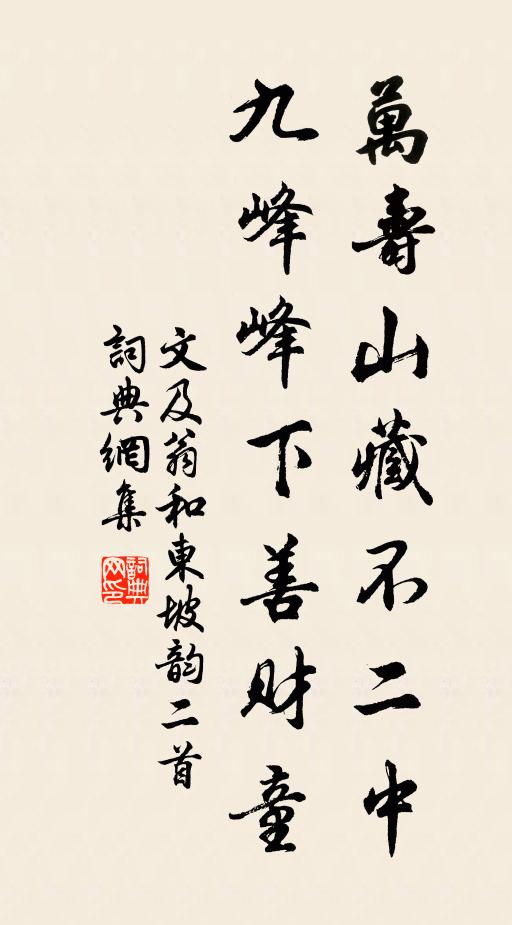 萬壽山藏不二中
九峰峰下善財童
文及翁和東坡韵二首
詞典網集
詞典网印